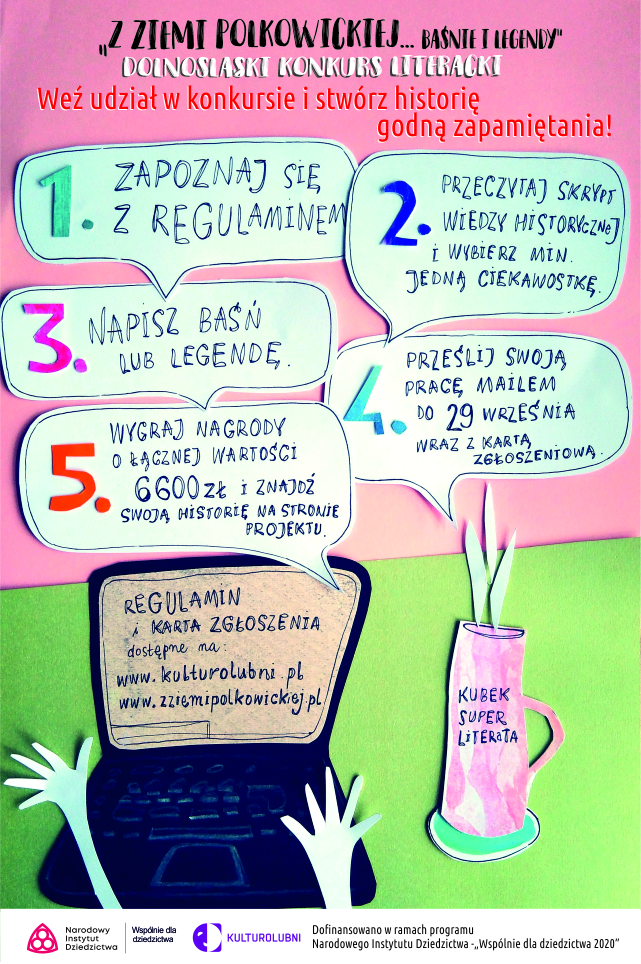 „Z ZIEMI POLKOWICKIEJ... BAŚNIE I LEGENDY"
DOLNOŚLĄSKI KONKURS LITERACKI
Weź udział w konkursie i stwórz historię
godną zapamiętania!
1. ZAPOZNAJ SIĘ
Z REGULAMINEM
2. PRZECZYTAJ SKRYPT
WIEDZY HISTORYCZNEJ
I WYBIERZ MIN.
JEDNĄ CIEKAWOSTKĘ.
3. NAPISZ BAŚŃ
LUB LEGENDĘ.
4. PRZEŚLIJ SWOJĄ
PRACĘ MAILEM
DO 29 WRZEŚNIA
WRAZ Z KARTĄ
ZGŁOSZENIOWĄ.
5. WYGRAJ NAGRODY
O ŁĄCZNEJ WARTOŚCI
6600 ZŁ I ZNAJDŹ
SWOJĄ HISTORIĘ NA STRONIE
PROJEKTU.
REGULAMIN
i KARTA ZGŁOSZENIA
dostępne na:
www.kulturolubni.pl
www.zziemipolkowickiej.pl
KUBEK
SUPER
LITERATA
Narodowy
Instytut
Dziedzictwa
Wspólnie dla
dziedzictwa
KULTUROLUBNI
Dofinansowano w ramach programu
Narodowego Instytutu Dziedzictwa -„Wspólnie dla dziedzictwa 2020"